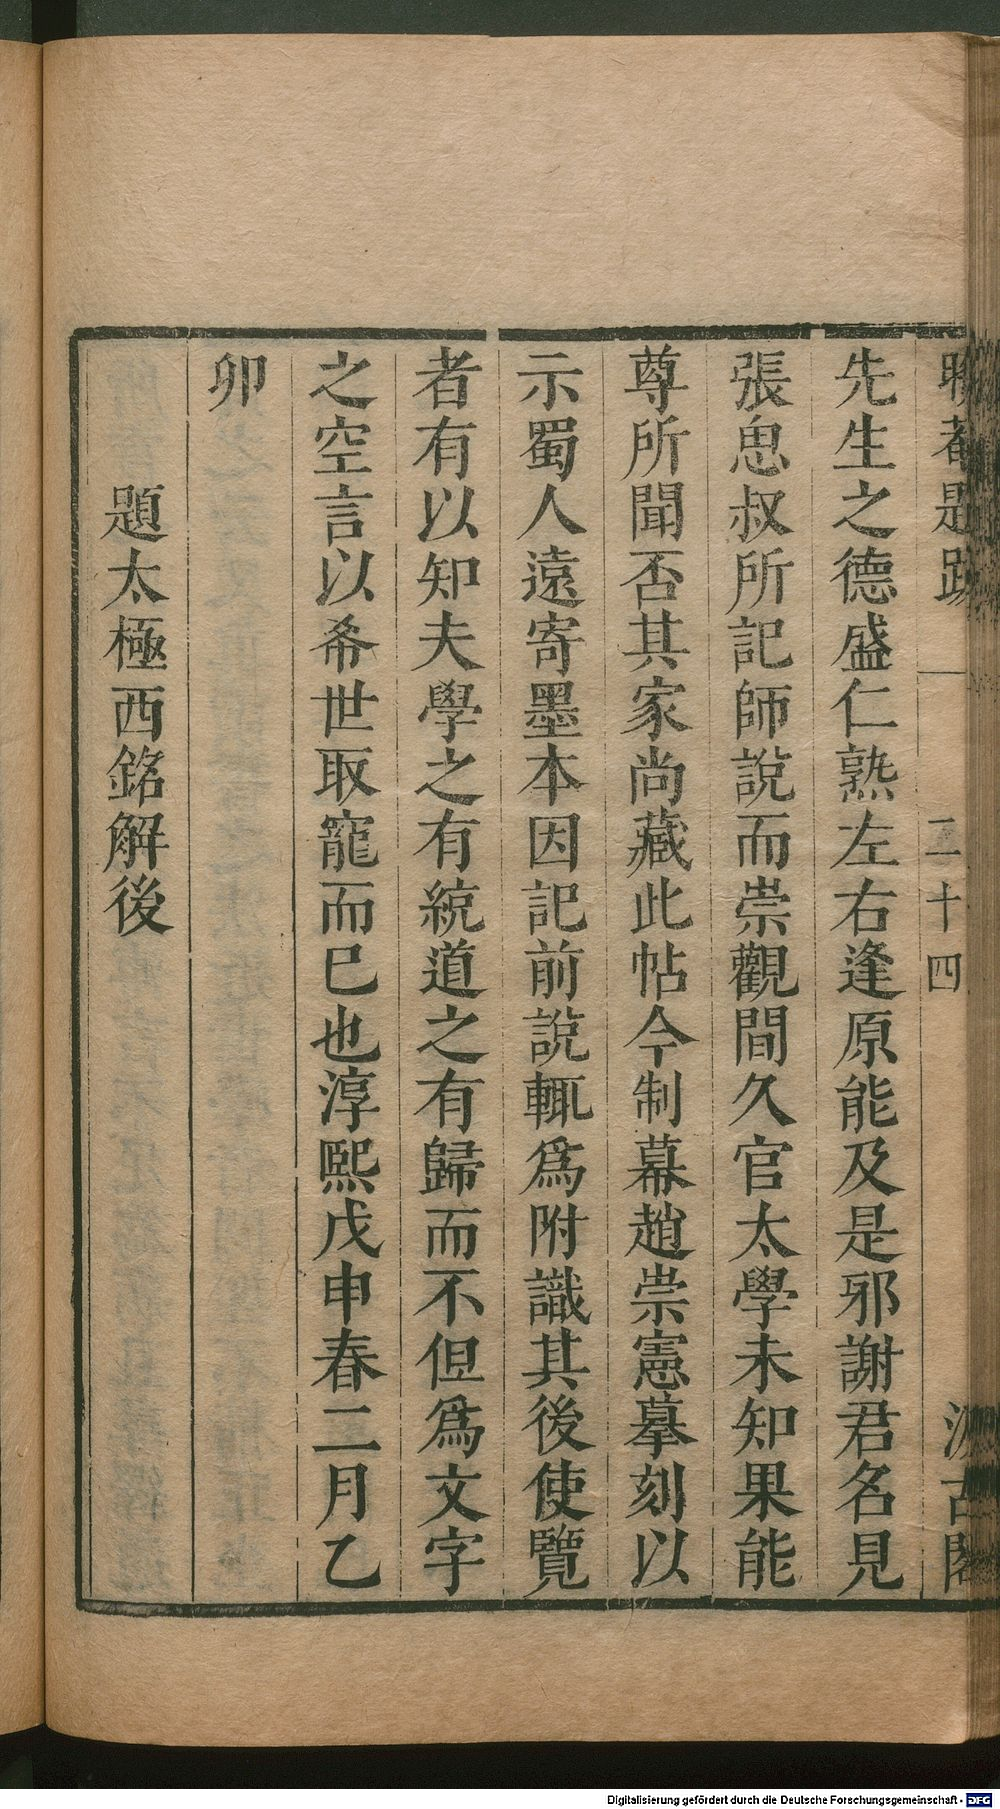 晦菴題跋 二十四 汲古閣
先生之德盛仁熟左右逢原能及是邪謝君名見
張思叔所記師說而崇觀間久官太學未知果能
尊所聞否其家尚藏此帖今制幕趙崇憲摹刻以
示蜀人遠寄墨本因記前說輒爲附識其後使覽
者有以知夫學之有統道之有歸而不但爲文字
之空言以希世取寵而已也淳熙戊申春二月乙
卯
題太極西銘解後
Digitalisierung gefördert durch die Deutsche Forschungsgemeinschaft - DFG